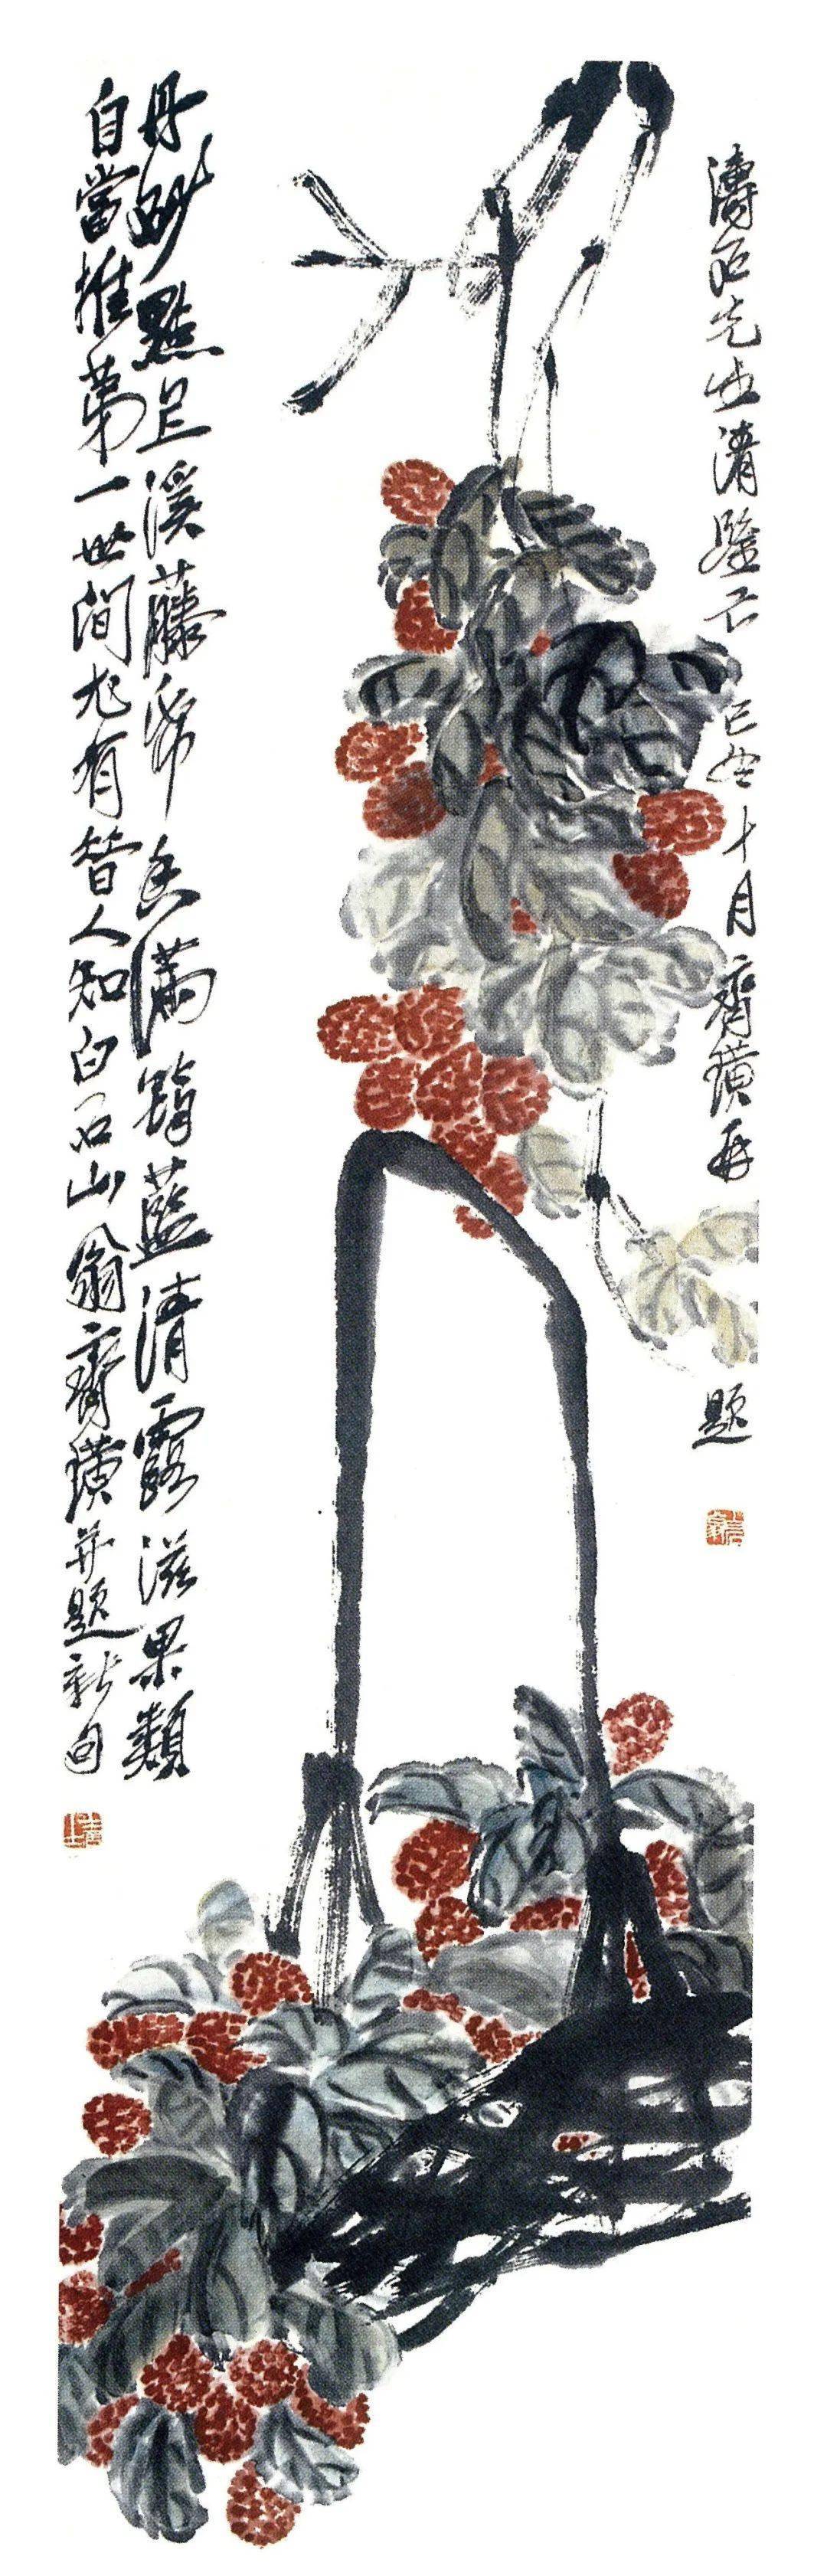 先生清鑒十月齊璜再題
丹砂點上溪藤帋香滿筠籃清露滋果類
自當推第一世間尤有昔人知白石山翁齊璜并題新句